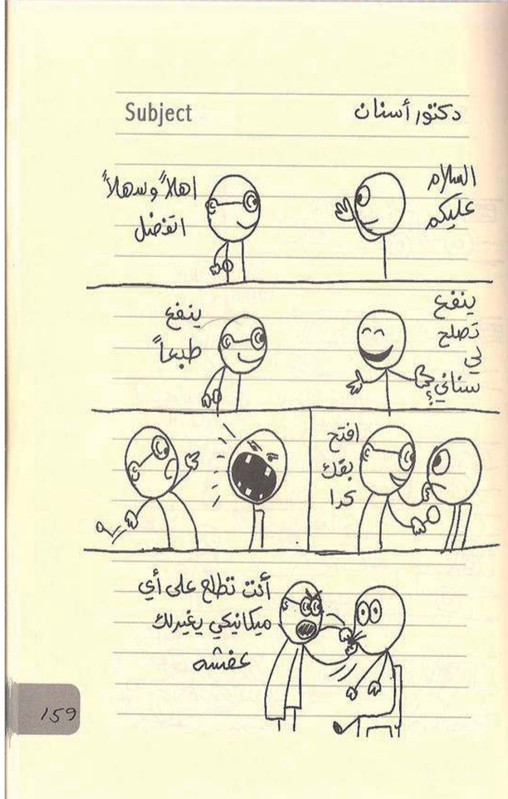 دكتور أسنان
Subject
السلام
عليكم
اهلاً وسهلاً
اتفضل
ينفع
تصلح
لي
سناني؟
ينفع
طبعاً
افتح
بقك
كدا
أنت تطلع على أي
ميكانيكي يغيرلك
عفشه
159